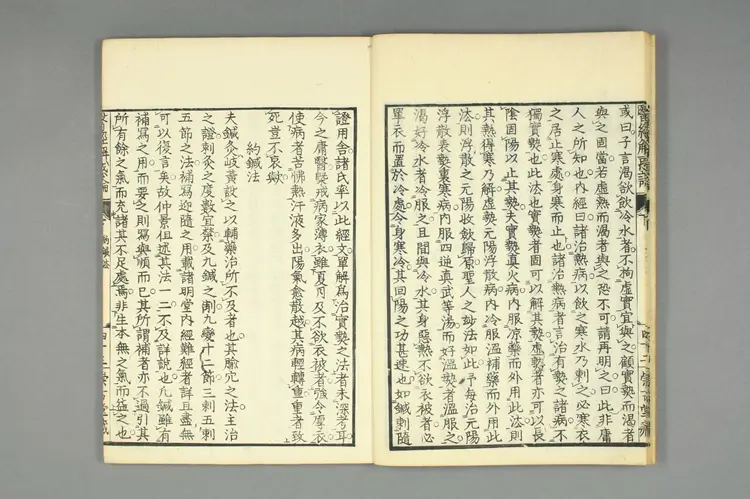 或曰子言渴欲飲冷水者不拘虛實宜與之顧實熱而渴者
與之固當若虛熱而渴者與之恐不可請再明之曰此非庸
人之所知也內經曰諸治熱病以飲之寒水乃刺之必寒衣
之居止寒處身寒而止也諸治熱病者言治有熱之諸病不
獨實熱也此法也實熱者固可以解其熱虛熱者亦可以長
陰固陽以止其熱夫實熱真火病內服凉藥而外用此法則
其熱得寒乃解虛熱元陽浮散病內服溫補藥而外用此
法則浮散之元陽收斂歸原聖人之妙法如此予每治元陽
浮散表熱裏寒病內服四逆真武等湯而好溫熱者溫服之
渴好冷水者冷服之且間與冷水其身惡熱不欲衣被者必
單衣而置於冷處令身寒冷其回陽之功甚速也如鍼刺隨
證用舍諸氏率以此經文單解爲治實熱之法者未深考耳
今之庸醫變戒病家薄衣雖夏月及不欲衣被者強令厚衣
使病者苦怫熱汗液多出陽氣愈散越其病輕轉重重者致
死豈不哀歟
約鍼法
夫鍼灸岐黃設之以輔藥治所不及者也其腧穴之法主治
之證刺灸之度數宜禁及九鍼之制九變十二節三刺五刺
五節之法補寫迎隨之用載諸明堂內經難經者詳且盡無
可以復言矣故仲景但述其法一二不及詳說也凡鍼雖有
補寫之用而要之則寫與順而已其所謂補者亦不過引其
所有餘之氣而充諸其不足處焉非生本無之氣而益之也